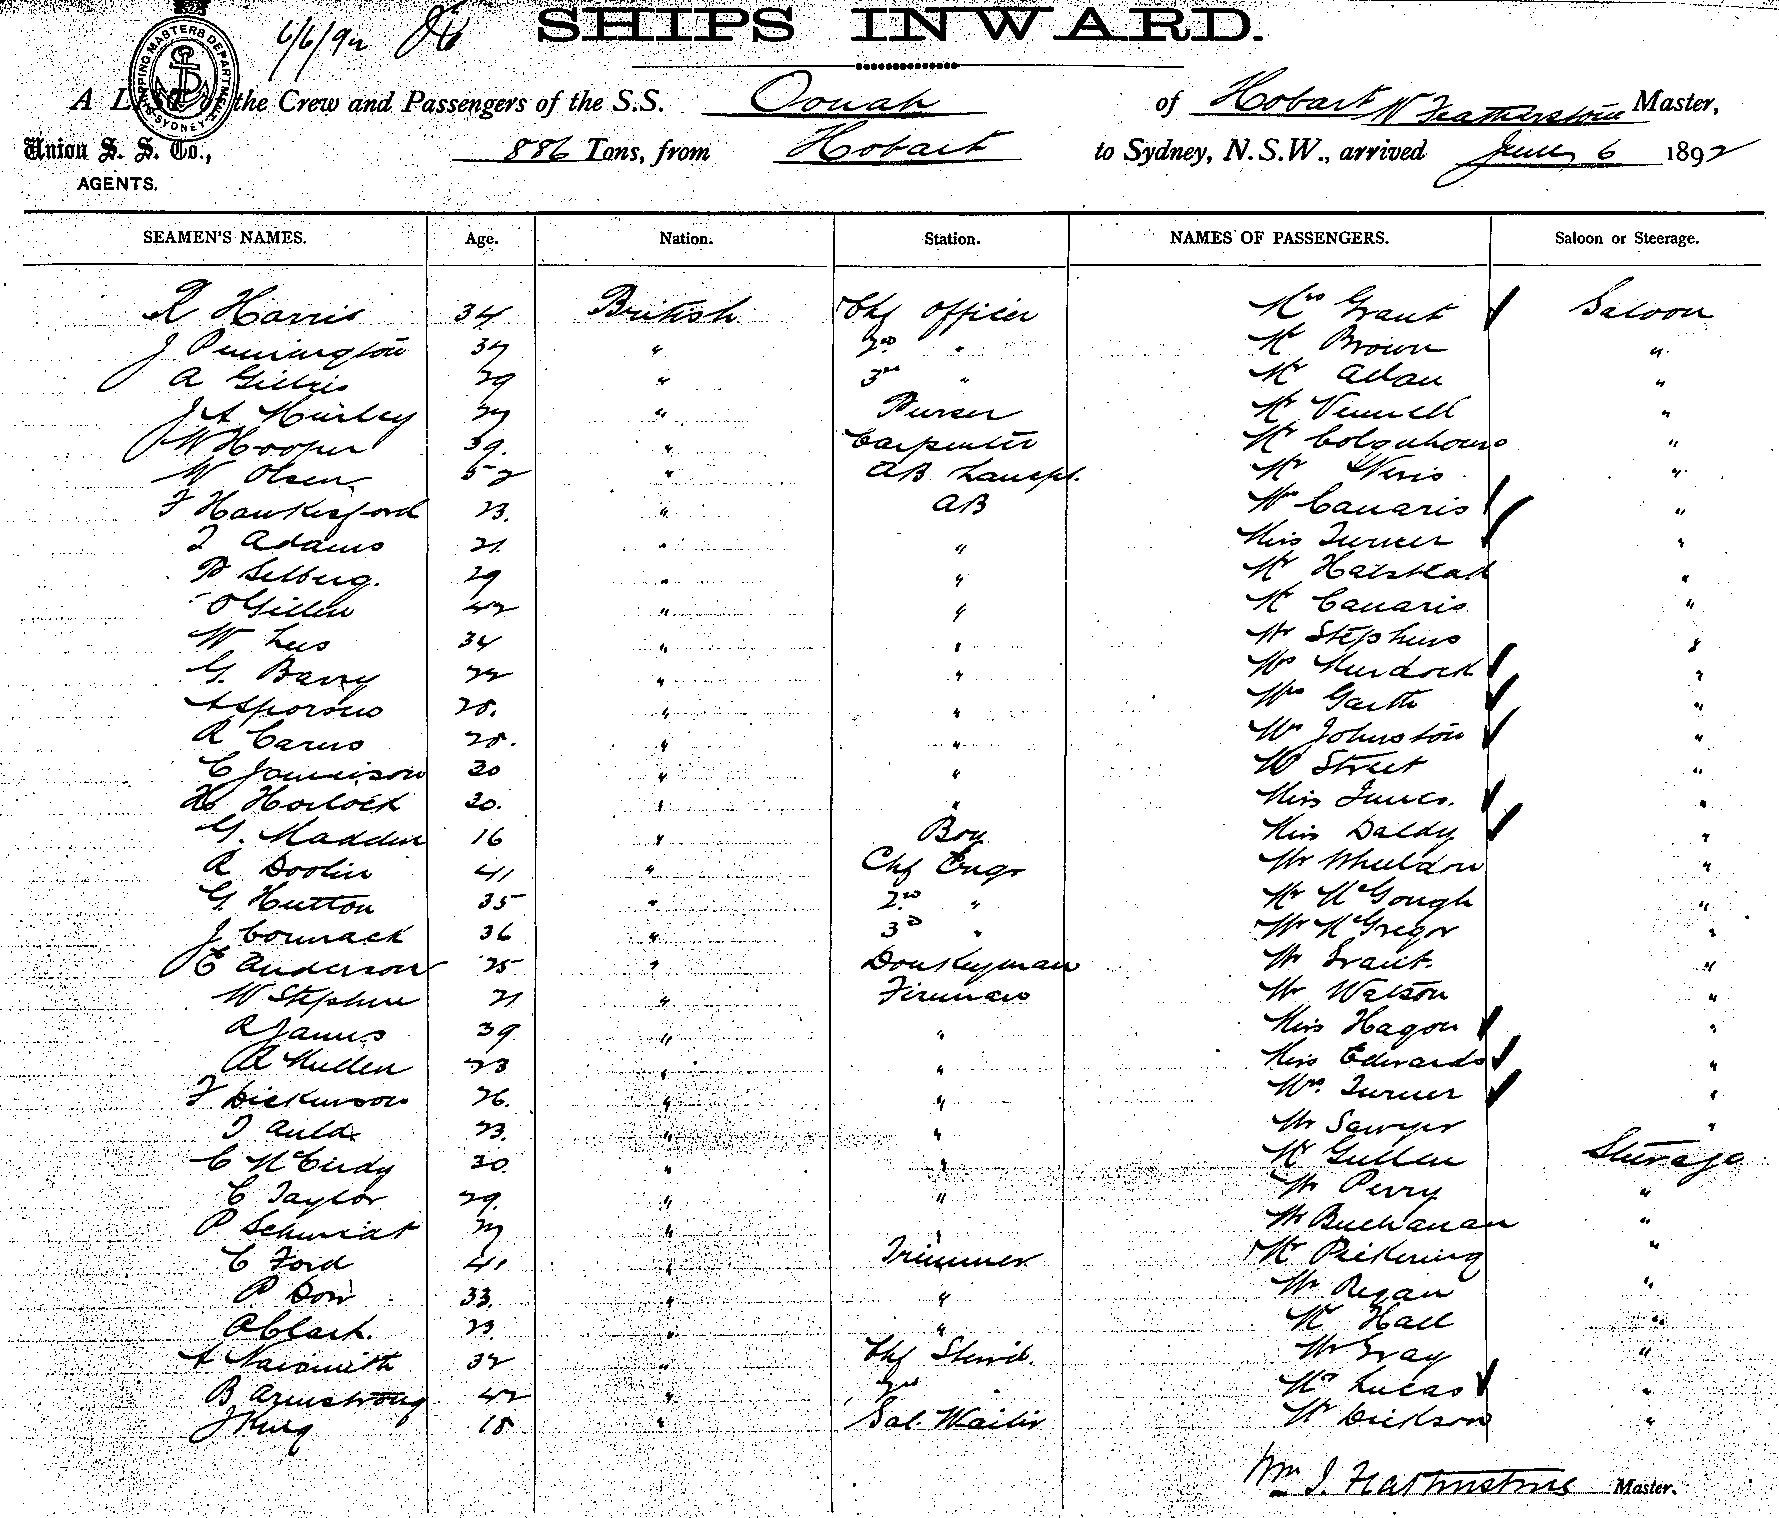 6/6/92
SHIPS INWARD.
SHIPPING MASTERS DEPARTMENT SYDNEY
A LIST of the Crew and Passengers of the S.S. Oonah of Hobart W Featherstone Master,
Union S. S. Co., 886 Tons, from Hobart to Sydney, N.S.W., arrived June 6 1892
AGENTS.
SEAMEN'S NAMES. Age. Nation. Station. NAMES OF PASSENGERS. Saloon or Steerage.
R Harris 34 British Chf Officer Mrs Grant Saloon
J Pennington 37 " 2nd " Mr Brown "
A Gillies 29 " 3rd " Mr Allan "
J A Hurley 27 " Purser Mr Vennell "
W Hooper 39. " Carpenter Mr Colquhoun "
W Olsen 52 " AB Lampt. Mr "
F Hawkesford 23. " AB Mrs Canaris "
T Adams 21 " " Miss Turner "
P Selberg. 29 " " Mr Halstead "
O Gillen 42 " " Mr Canaris "
W Lees 34 " " Mr Stephens "
G. Barry 22 " " Mrs Murdock "
28. " " Mrs Garth "
R Carns 28. " " Mrs Johnston "
C Jamieson 30 " " Mr Street "
H Horlock 30. " " Miss Innes. "
G. Madden 16 " Boy Miss Daldy "
R Doolin 41 " Chf Engr Mr Wheeldon "
G. Hutton 35 " 2nd " Mr McGough "
J Cormack 36 " 3d " Mr McGregor "
C Anderson 25 " Donkeyman Mr Grant. "
W Stephen 21 " Fireman Mr Watson "
R James 39 " " Miss Hagon "
R Mullen 23 " " Miss Edwards "
F Dickinson 26. " " Mrs. Turner "
T Auld. 23. " " Mr Sawyer "
C McCurdy 30 " " Mr Gullen Steerage
C Taylor 29. " " Mr Perry "
P Schmidt 27 " " Mr Buchanan "
C Ford 41 " Trimmer Mr Pickering "
P Dow 33. " " Mr Regan "
A Clark. 23. " " Mr Hall "
A Naismith 32 " Chf Stewd. Mr Gray "
B Armstrong 42 " 2nd " Mrs Lucas "
J King 18 " Sal. Waiter Mr Dickson "
Wm J. Featherstone Master.